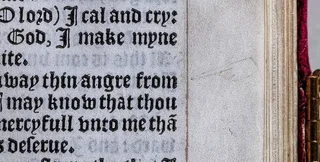 O lord) I cal and cry:
God, I make myne
ite.
away thin angre from
I may know that thou
mercyfull vnto me thā
s deserue.